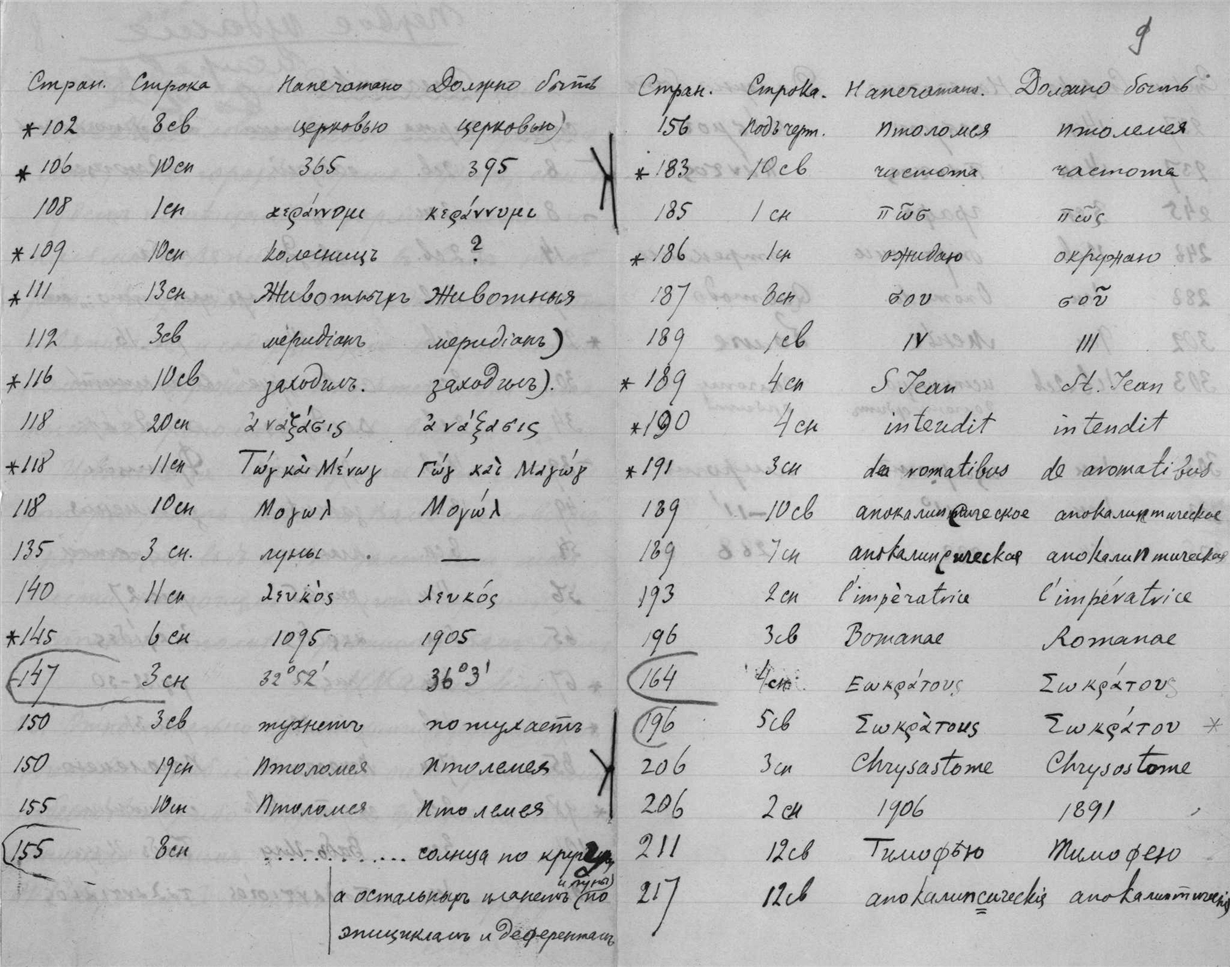 9
Стран. Строка Напечатано Должно быть
*102 8св церковью церковью)
*106 10сн 365 395
108 1сн κεράννυμι
*109 10сн колесницъ ?
*111 13сн Животныхъ Животныя
112 3св меридіанъ меридіанъ)
*116 10св заходитъ. заходитъ).
118 20сн ἀνάξασις
*118 11сн Γώγ καὶ Μαγώγ
118 10сн Μογωλ Μογώλ
135 3 сн. луны. —
140 11сн λευκὸς λευκός
*145 6сн 1095 1905
147 3сн 32°52' 36°3'
150 3св тухнетъ потухаетъ
150 19сн Птоломея Птолемея
155 10сн Птоломея Птолемея
155 8сн .............. солнца по кругу,
и луны)
а остальныхъ планетъ (по
эпицикламъ и деферентамъ
Стран. Строка. Напечатано. Должно быть
156 Подъ черт. Птоломея Птолемея
*183 10св чистота частота
185 1сн πῶσ πῶς
*186 1сн ожидаю окружаю
187 8сн σου σοῦ
189 1св IV III
*189 4сн S Jean St. Jean
*190 4сн interdit intendit
*191 3сн de romatibus de aromatibus
189 10св апокалипсическое апокалиптическое
189 7сн апокалипсическая апокалиптическая
193 2сн l'impèratrice l'impératrice
196 3св Bomanae Romanae
164 4сн. Εωκράτους Σωκράτους
196 5св Σωκράτους Σωκράτου *
206 3сн Chrysastome Chrysostome
206 2сн 1906 1891
211 12св Тимофѣю Тимофею
217 12св апокалипсическія апокалиптическія